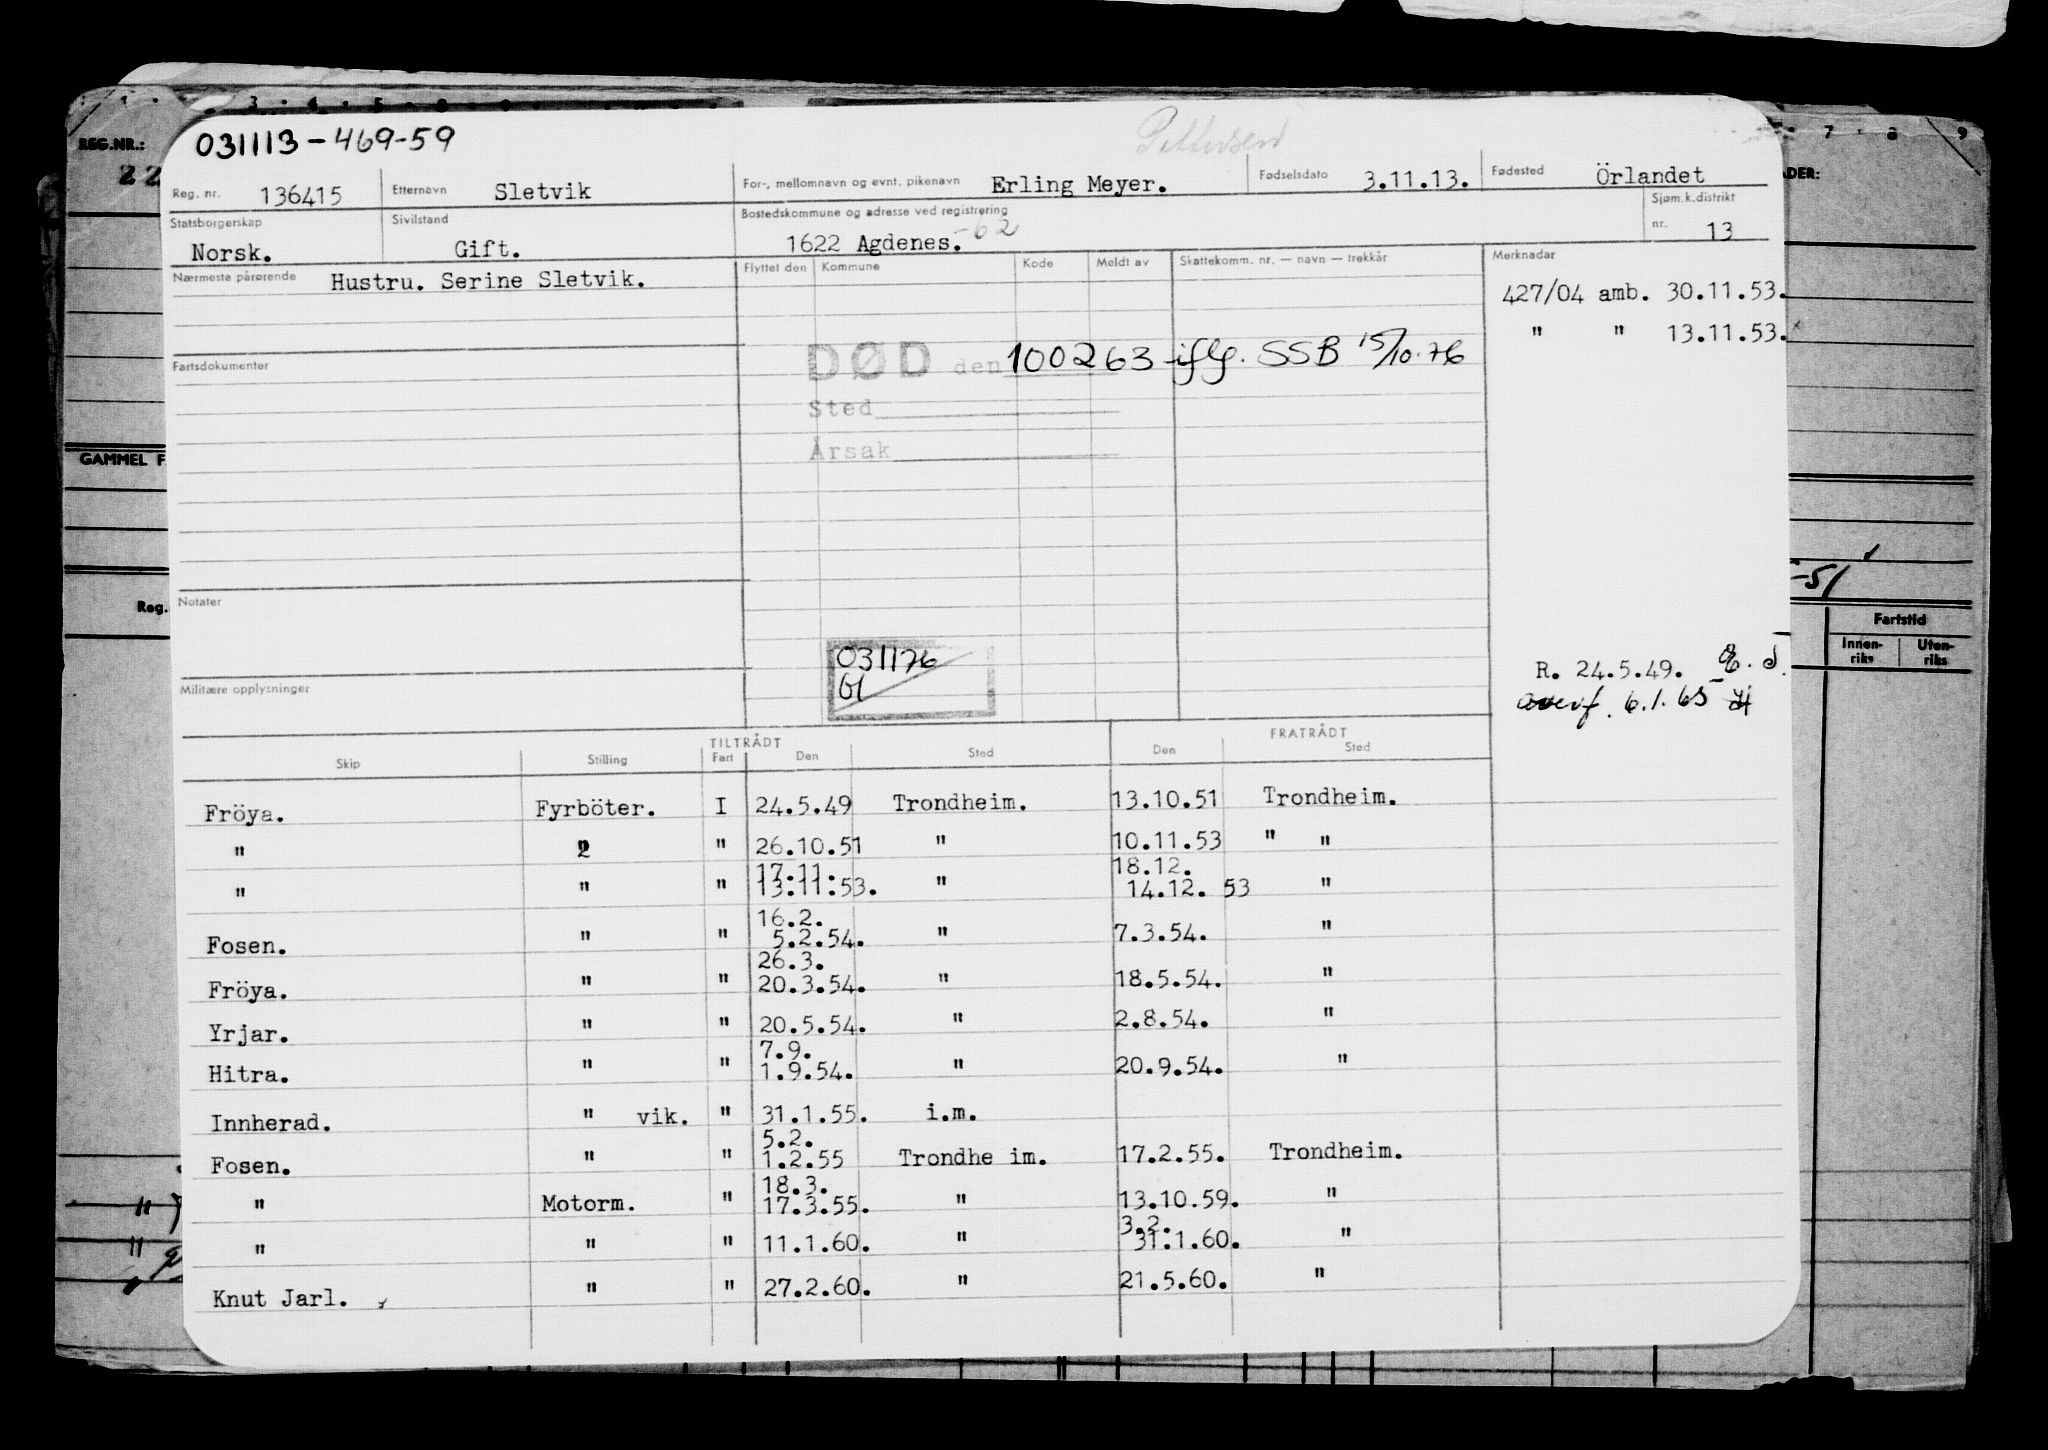 1 3 4 5 8 9
7 8 9
REG.NR.:
22
ADER:
GAMMEL F
Reg.
-51
Fartstid
Innen-riks Uten-riks
031113-469-59
Pettersen
Reg. nr. 136415 Etternavn Sletvik For-, mellomnavn og evnt. pikenavn Erling Meyer. Fødselsdato 3.11.13. Fødested Örlandet
Statsborgerskap Norsk. Sivilstand Gift. Bostedskommune og adresse ved registrering 1622 Agdenes. -62 Sjøm.k.distrikt nr. 13
Nærmeste pårørende Hustru. Serine Sletvik. Flyttet den Kommune Kode Meldt av Skattekomm. nr. — navn — trekkår Merknader
427/04 amb. 30.11.53.
" " 13.11.53.
Fartsdokumenter
DØD den 100263 iflg. SSB 15/10.76
Sted
Årsak
Notater
031176
Gl
Militære opplysninger
R. 24.5.49.
overf. 6.1.65
TILTRÅDT FRATRÅDT
Skip Stilling Fart Den Sted Den Sted
Fröya. Fyrböter. I 24.5.49 Trondheim. 13.10.51 Trondheim.
" 2 " 26.10.51 " 10.11.53 " "
17.11. 18.12.
" " " 13.11.53. " 14.12. 53 "
16.2.
Fosen. " " 5.2.54. " 7.3.54. "
26.3.
Fröya. " " 20.3.54. " 18.5.54. "
Yrjar. " " 20.5.54. " 2.8.54. "
7.9.
Hitra. " " 1.9.54. " 20.9.54. "
Innherad. " vik. " 31.1.55. i.m.
5.2.
Fosen. " " 1.2.55 Trondhe im. 17.2.55. Trondheim.
18.3.
" Motorm. " 17.3.55. " 13.10.59. "
3.2.
" " " 11.1.60. " 31.1.60. "
Knut Jarl. " " 27.2.60. " 21.5.60. "